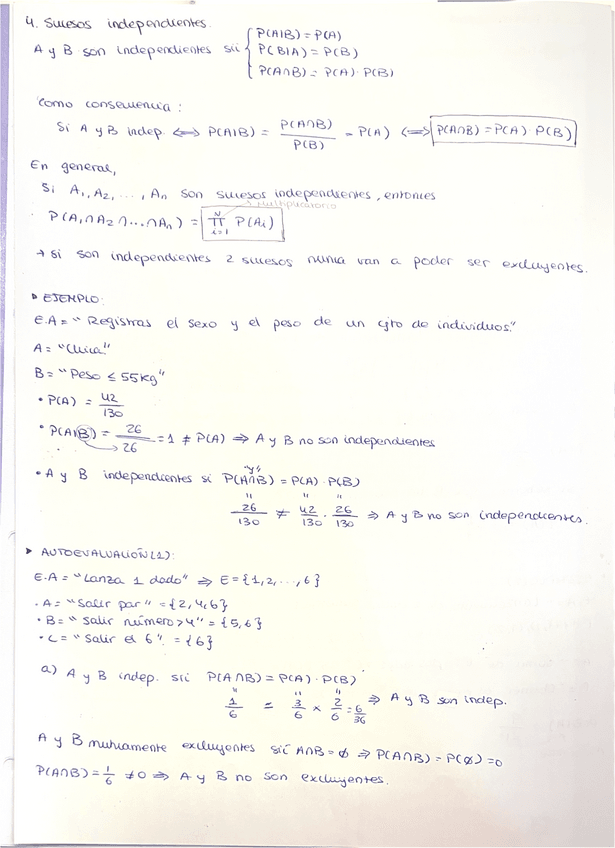 4. Sucesos independientes.
A y B son independientes sii { P(A|B) = P(A)
P(B|A) = P(B)
P(A∩B) = P(A) · P(B)
Como consecuencia:
Si A y B indep. ⟺ P(A|B) = P(A∩B) / P(B) = P(A) ⟺ P(A∩B) = P(A) · P(B)
En general,
Si A₁, A₂, ..., Aₙ son sucesos independientes, entonces
multiplicatorio
P(A₁∩A₂∩...∩Aₙ) = ∏ᵢ₌₁ᴺ P(Aᵢ)
→ Si son independientes 2 sucesos nunca van a poder ser excluyentes.
▸ EJEMPLO:
E.A = "Registras el sexo y el peso de un cjto de individuos."
A = "Chica"
B = "Peso ≤ 55kg"
• P(A) = 42/130
• P(A|B) = 26/26 = 1 ≠ P(A) ⇒ A y B no son independientes
"y"
• A y B independientes si P(A∩B) = P(A) · P(B)
" " "
26/130 ≠ 42/130 · 26/130 ⇒ A y B no son independientes.
▸ AUTOEVALUACIÓN (1):
E.A = "Lanza 1 dado" ⇒ E = {1, 2, ..., 6}
• A = "Salir par" = {2, 4, 6}
• B = "Salir número > 4" = {5, 6}
• C = "Salir el 6". = {6}
a) A y B indep. sii P(A∩B) = P(A) · P(B)
" " "
1/6 = 3/6 × 2/6 = 6/36 ⇒ A y B son indep.
A y B mutuamente excluyentes sii A∩B = ∅ ⇒ P(A∩B) = P(∅) = 0
P(A∩B) = 1/6 ≠ 0 ⇒ A y B no son excluyentes.